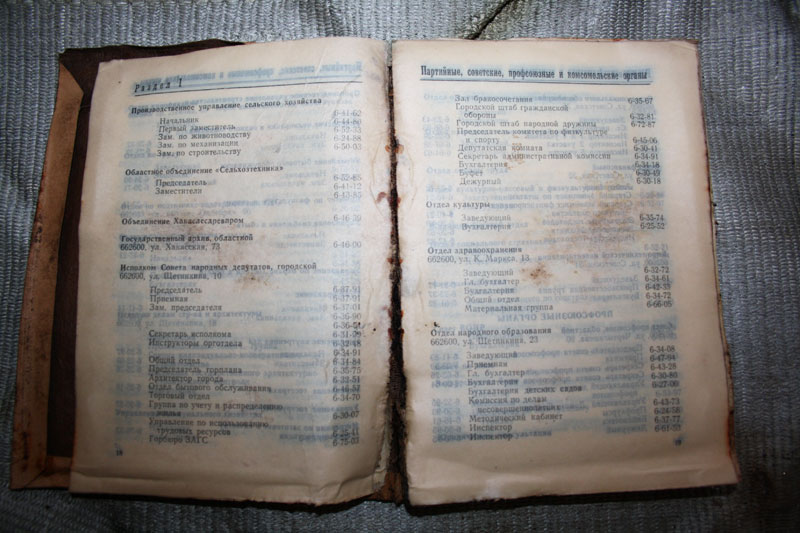 Раздел I
Производственное управление сельского хозяйства
Начальник 6-41-62
Первый заместитель 6-44-80
Зам. по животноводству 6-52-53
Зам. по механизации 6-34-88
Зам. по строительству 6-50-03
Областное объединение «Сельхозтехника»
Председатель 6-52-85
Заместители 6-41-12
6-43-85
Объединение Хакаслесдревпром 6-46-29
Государственный архив, областной
662600, ул. Хакасская, 73 6-46-00
Исполком Совета народных депутатов, городской
662600, ул. Щетинкина, 10
Председатель 6-37-91
Приемная 6-37-91
Зам. председателя 6-37-01
6-36-90
6-36-51
Секретарь исполкома 6-31-29
Инструкторы орготдела 6-32-48
6-34-91
Общий отдел 6-34-84
Председатель горплана 6-35-75
Архитектор города 6-32-51
Отдел бытового обслуживания 6-46-52
Торговый отдел 6-34-70
Группа по учету и распределению
жилья 6-30-67
Управление по использованию
трудовых ресурсов
Горбюро ЗАГС 6-75-03
18
Партийные, советские, профсоюзные и комсомольские органы
Зал бракосочетания 6-35-67
Городской штаб гражданской
обороны 6-32-81
Городской штаб народной дружины 6-72-87
Председатель комитета по физкультуре
и спорту 6-45-06
Депутатская комната 6-30-41
Секретарь административной комиссии 6-34-91
Бухгалтерия 6-34-18
Буфет 6-30-49
Дежурный 6-30-18
Отдел культуры
Заведующий 6-35-74
Бухгалтерия 6-25-52
Отдел здравоохранения
662600, ул. К. Маркса, 13
Заведующий 6-32-72
Гл. бухгалтер 6-34-61
Бухгалтерия 6-42-33
Общий отдел 6-34-72
Материальная группа 6-66-05
Отдел народного образования
662600, ул. Щетинкина, 23
Заведующий 6-34-08
Приемная 6-47-94
Гл. бухгалтер 6-43-28
Бухгалтерия 6-30-85
Бухгалтерия детских садов 6-27-00
Комиссия по делам
несовершеннолетних 6-43-73
Методический кабинет 6-24-56
Инспектор 6-37-77
Инспектор 6-51-53
19